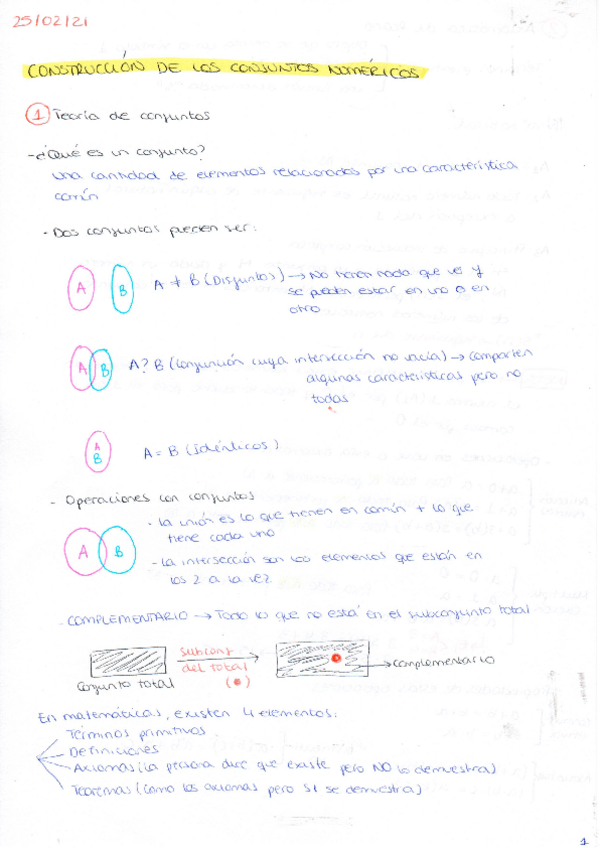 25/02/21
CONSTRUCCIÓN DE LOS CONJUNTOS NUMÉRICOS
1 Teoría de conjuntos
- ¿Qué es un conjunto?
Una cantidad de elementos relacionados por una característica
común
- Dos conjuntos pueden ser:
A B A ≠ B (Disjuntos) → No tienen nada que ver y
se pueden estar en uno o en
otro
A B A? B (Conjunción cuya intersección no vacía) → comparten
algunas características pero no
todas
A
B A = B (Idénticos)
- Operaciones con conjuntos
- La unión es lo que tienen en común + lo que
tiene cada uno
A B
- La intersección son los elementos que están en
los 2 a la vez
- COMPLEMENTARIO → Todo lo que no está en el subconjunto total
subconj
del total
(•)
Conjunto total
→ complementario
En matemáticas, existen 4 elementos:
Términos primitivos
Definiciones
Axiomas (la persona dice que existe pero NO lo demuestra)
Teoremas (como los axiomas pero SI se demuestra)
1